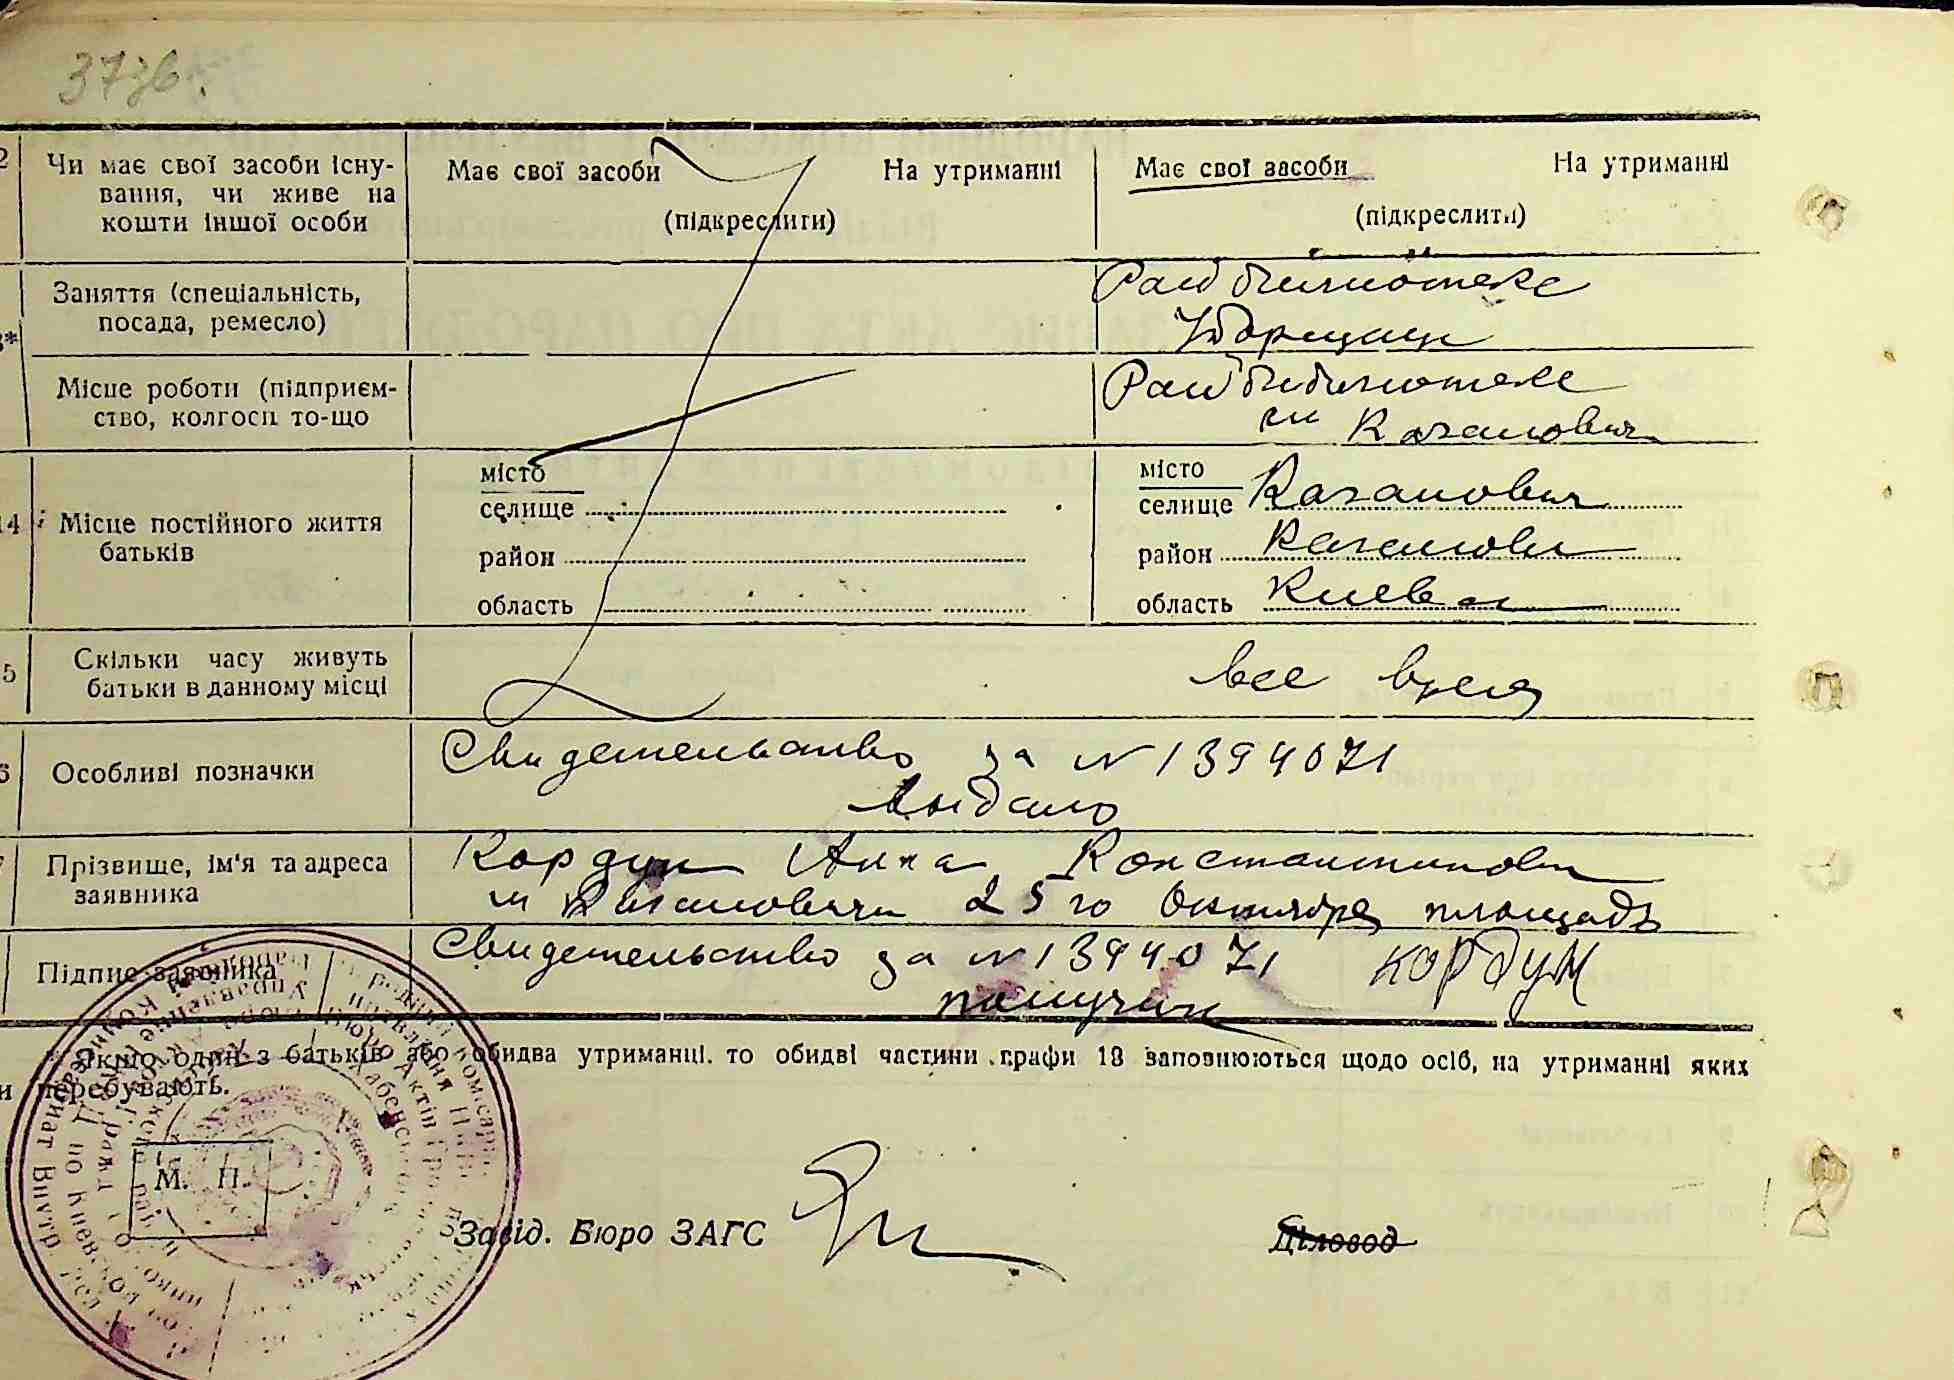 2
Чи має свої засоби існу-
вання, чи живе на
кошти іншої особи
Має свої засоби
На утриманні
(підкреслити)
Має свої засоби
На утриманні
(підкреслити)
3*
Заняття (спеціальність,
посада, ремесло)
Рай библиотеке
Уборщица
Місце роботи (підприєм-
ство, колгосп то-що
Рай библиотеке
Каганович
14
Місце постійного життя
батьків
місто
селище
район
область
місто
селище Каганович
район Каганови
область Киевская
5
Скільки часу живуть
батьки в данному місці
все время
6
Особливі позначки
Свидетельство за N 1394071
Выдано
7
Прізвище, ім'я та адреса
заявника
Кордун Анна Константиновн
м Кагановичи 25 го Октября площадь
Підпис заявника
Свидетельство за N 1394071 КОРДУН
получил
* Якщо один з батьків або обидва утриманці. то обидві частини графи 13 заповнюються щодо осіб, на утриманні яких
и перебувають.
М. П.
Завід. Бюро ЗАГС
Діловод